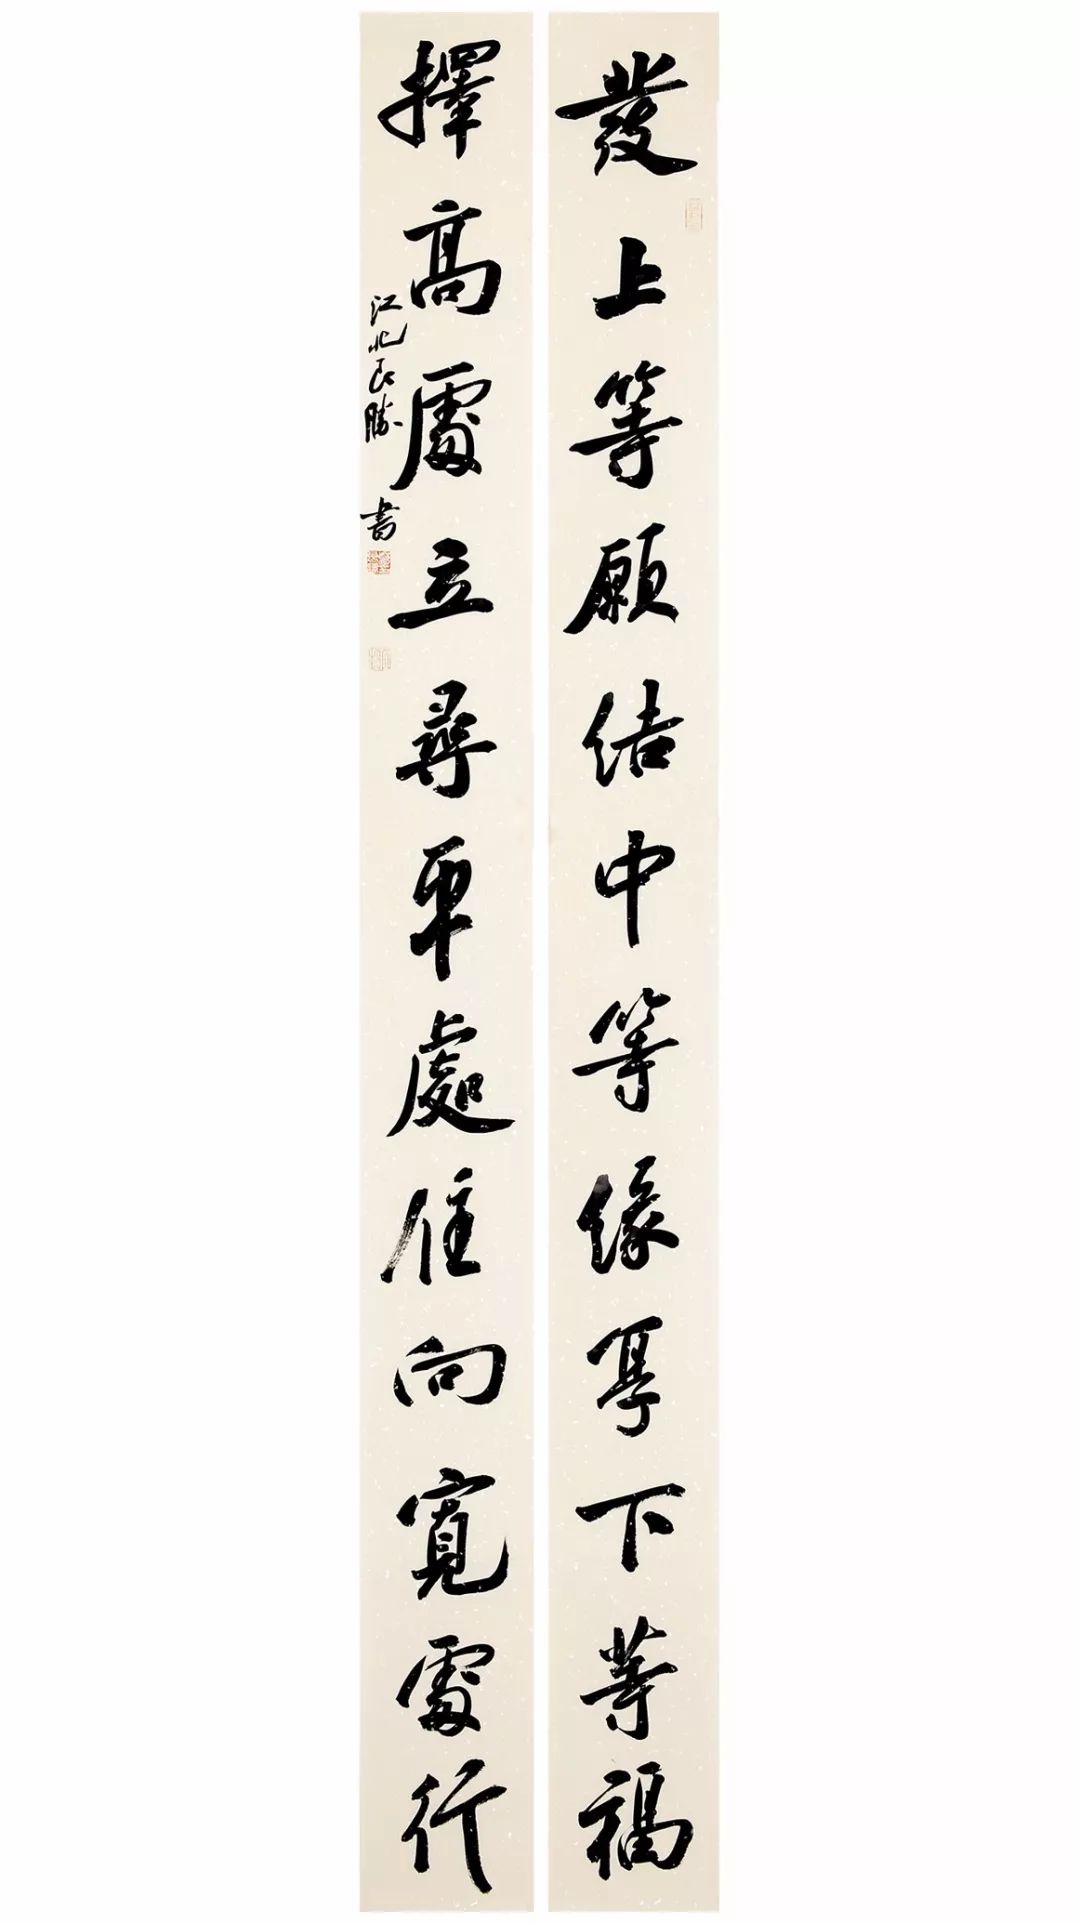 發上等願結中等緣享下等福
擇高處立尋平處住向寬處行
江北勝書